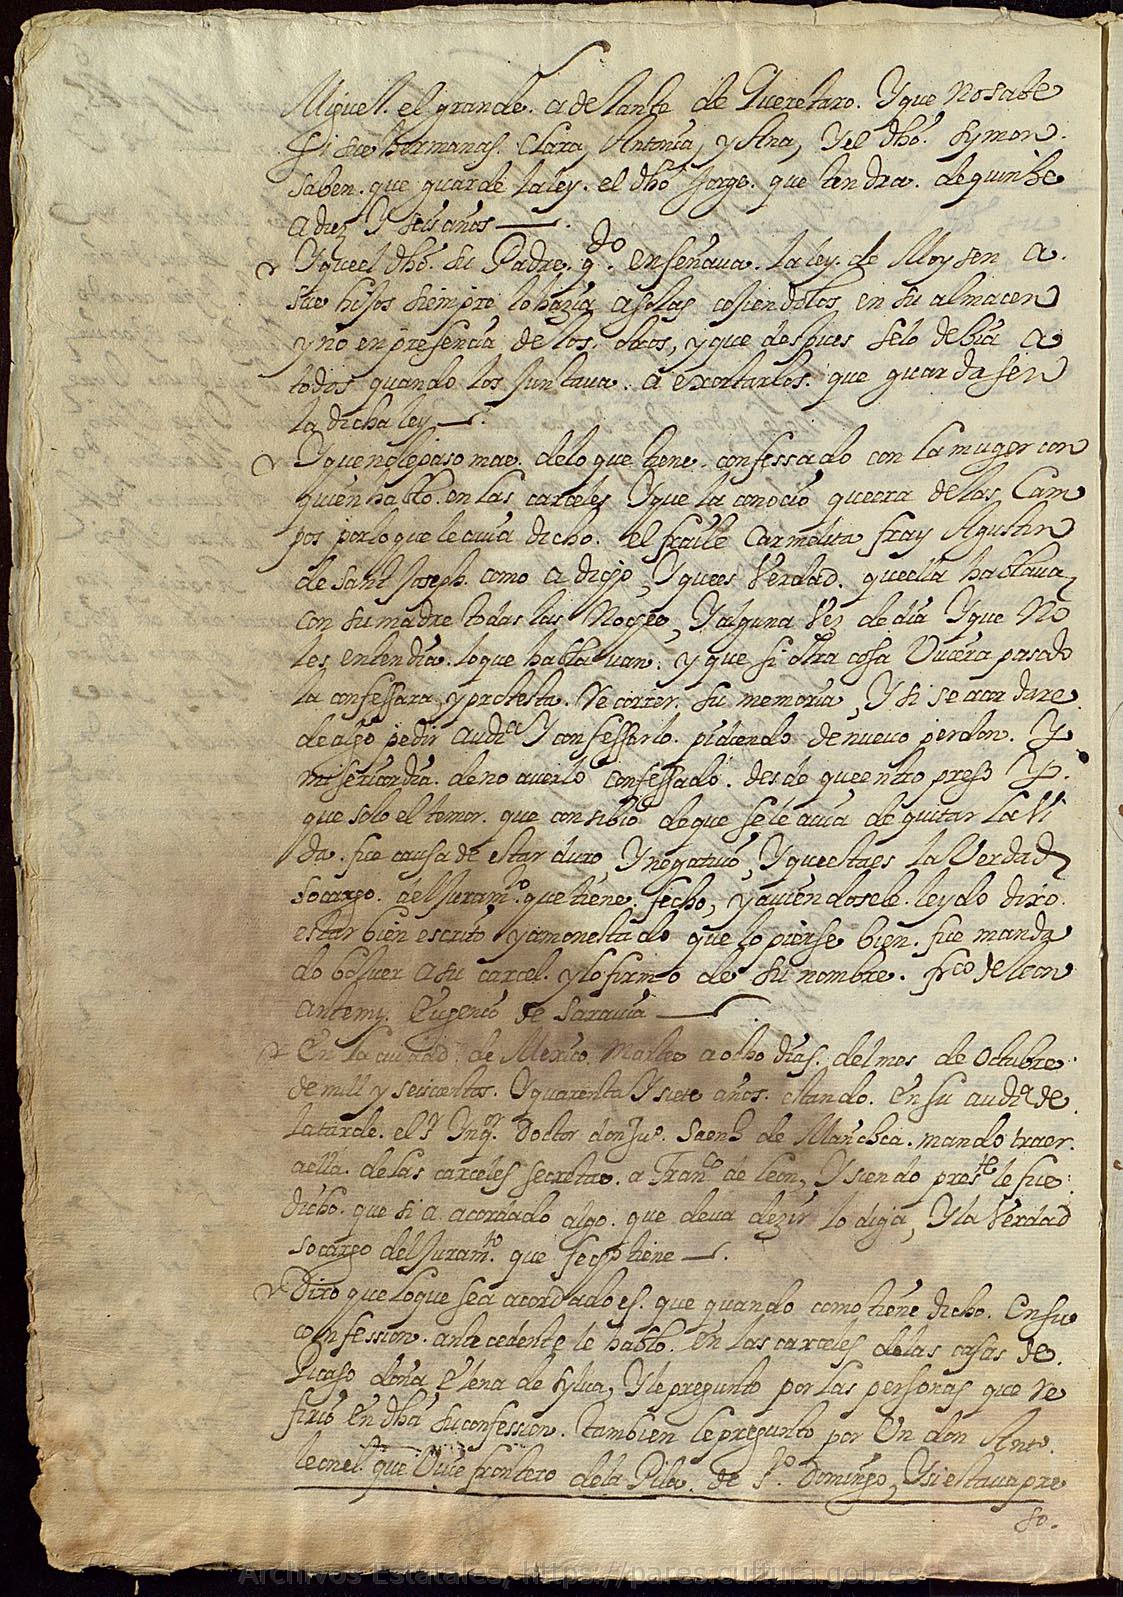 Miguel. el grande. adelante de Queretaro. Y que No sabe
si sus hermanas. Clara, Antonia, y Ana, Y el dho. Symon.
saben. que guarde la ley. el dho Jorge. que tendra. de quinze
a diez Y seis años
Y que el dho. su Padre. qdo. enseñaua. la ley. de Moysen a
sus hijos siempre lo hazia a solas cojiendolos en su almacen
y no en presencia de los. otros, y que despues se lo debia a
todos quando los Juntaua. a exortarlos. que guardasen
la dicha ley
Y que no le paso mas. de lo que tiene. confessado con la muger con
quien hablo. en las carceles Y que la conocio que era de las Cam
pos por lo que le auia dicho. el fraile Carmelita fray Agustin
de Sant Joseph. como a dicho, Y que es Verdad. que ella hablaua
con su madre todas las Noches, Y alguna Vez de dia Y que No
les entendia. lo que hablauan. y que si otra cosa Vuiera pasado
la confessara, y protesta. Recorrer. su memoria, Y si se acordare
de algo pedir Audia Y confessarlo. pidiendo de nueuo perdon. Y
misericordia. de no auerlo confessado. desde que entro preso Y.
que solo el temor. que consibio de que se le auia de quitar la Vi
da. fue causa de estar duro, Y negatiuo, Y que esta es la Verdad
so cargo. del Juramto. que tiene. fecho, y auiendosele. leydo dixo.
estar bien escrito y amonestado que lo piense bien. fue manda
do boluer a su carcel. y lo firmo de su nombre. frco de leon
ante my. Eugenio de Sarauia
En la ciudad. de Mexico Martes a ocho dias. del mes de Octubre
de mill y seiscientos. Y quarenta Y siete años. estando. en su audia de
la tarde. el sr Inqr. Doctor don Juo. Saenz de Mañosca. mando traer
a ella. de las carceles secretas. a Franco de leon, Y siendo preste le fue
dicho. que si a acordado algo. que deua dezir lo diga, Y la Verdad
so cargo del Juramto. que fecho tiene
Dixo que lo que se a acordado es. que quando como tiene dicho. en su
confession. antecedente le hablo. en las carceles de las casas de
Picaso doña Elena de Sylua, Y le pregunto por las personas que re
firio en dha su confession. tambien le pregunto por Un don Anto.
leonel. que Viue frontero de la Pila. de Sto Domingo, Y si estaua pre
so.
Archivos Estatales, https://pares.cultura.gob.es